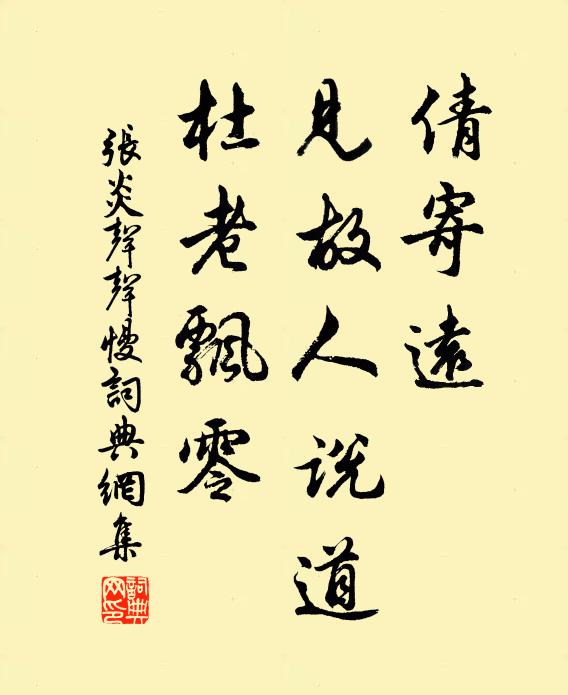 倩寄遠
見故人說道
杜老飄零
張炎聲聲慢詞典網集
詞典網印